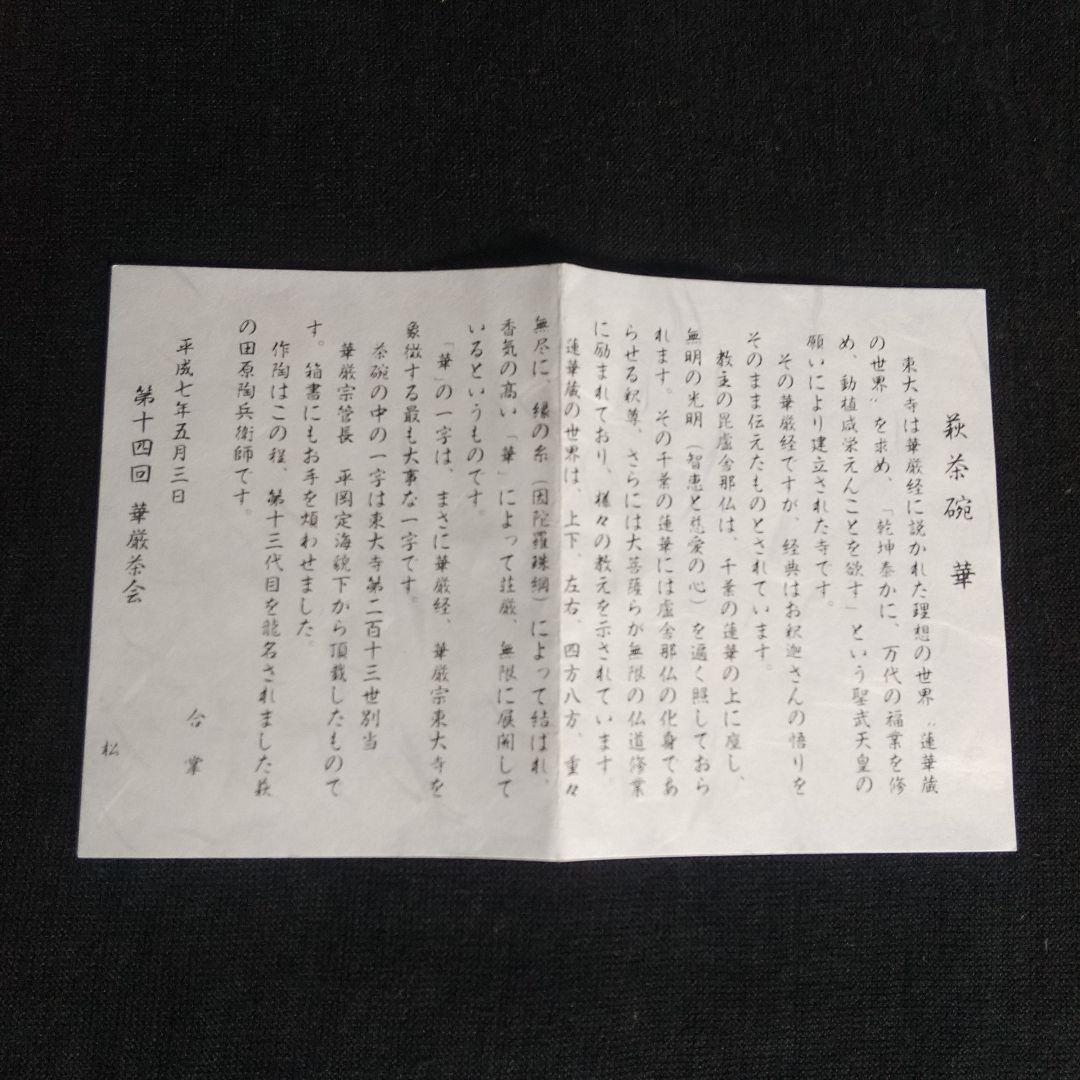 萩茶碗　華
東大寺は華厳経に説かれた理想の世界〝蓮華蔵
の世界〟を求め、「乾坤泰かに、万代の福業を修
め、動植咸栄えんことを欲す」という聖武天皇の
願いにより建立された寺です。
その華厳経ですが、経典はお釈迦さんの悟りを
そのまま伝えたものとされています。
教主の毘盧舎那仏は、千葉の蓮華の上に座し、
無明の光明（智恵と慈愛の心）を遍く照しておら
れます。その千葉の蓮華には盧舎那仏の化身であ
らせる釈尊、さらには大菩薩らが無限の仏道修業
に励まれており、様々の教えを示されています。
蓮華蔵の世界は、上下、左右、四方八方、重々
無尽に、縁の糸（因陀羅珠網）によって結ばれ、
香気の高い「華」によって荘厳、無限に展開して
いるというものです。
「華」の一字は、まさに華厳経、華厳宗東大寺を
象徴する最も大事な一字です。
茶碗の中の一字は東大寺第二百十三世別当
華厳宗管長　平岡定海猊下から頂戴したもので
す。箱書にもお手を煩わせました。
作陶はこの程、第十三代目を襲名されました萩
の田原陶兵衛師です。
平成七年五月三日
第十四回　華厳茶会
合掌
松